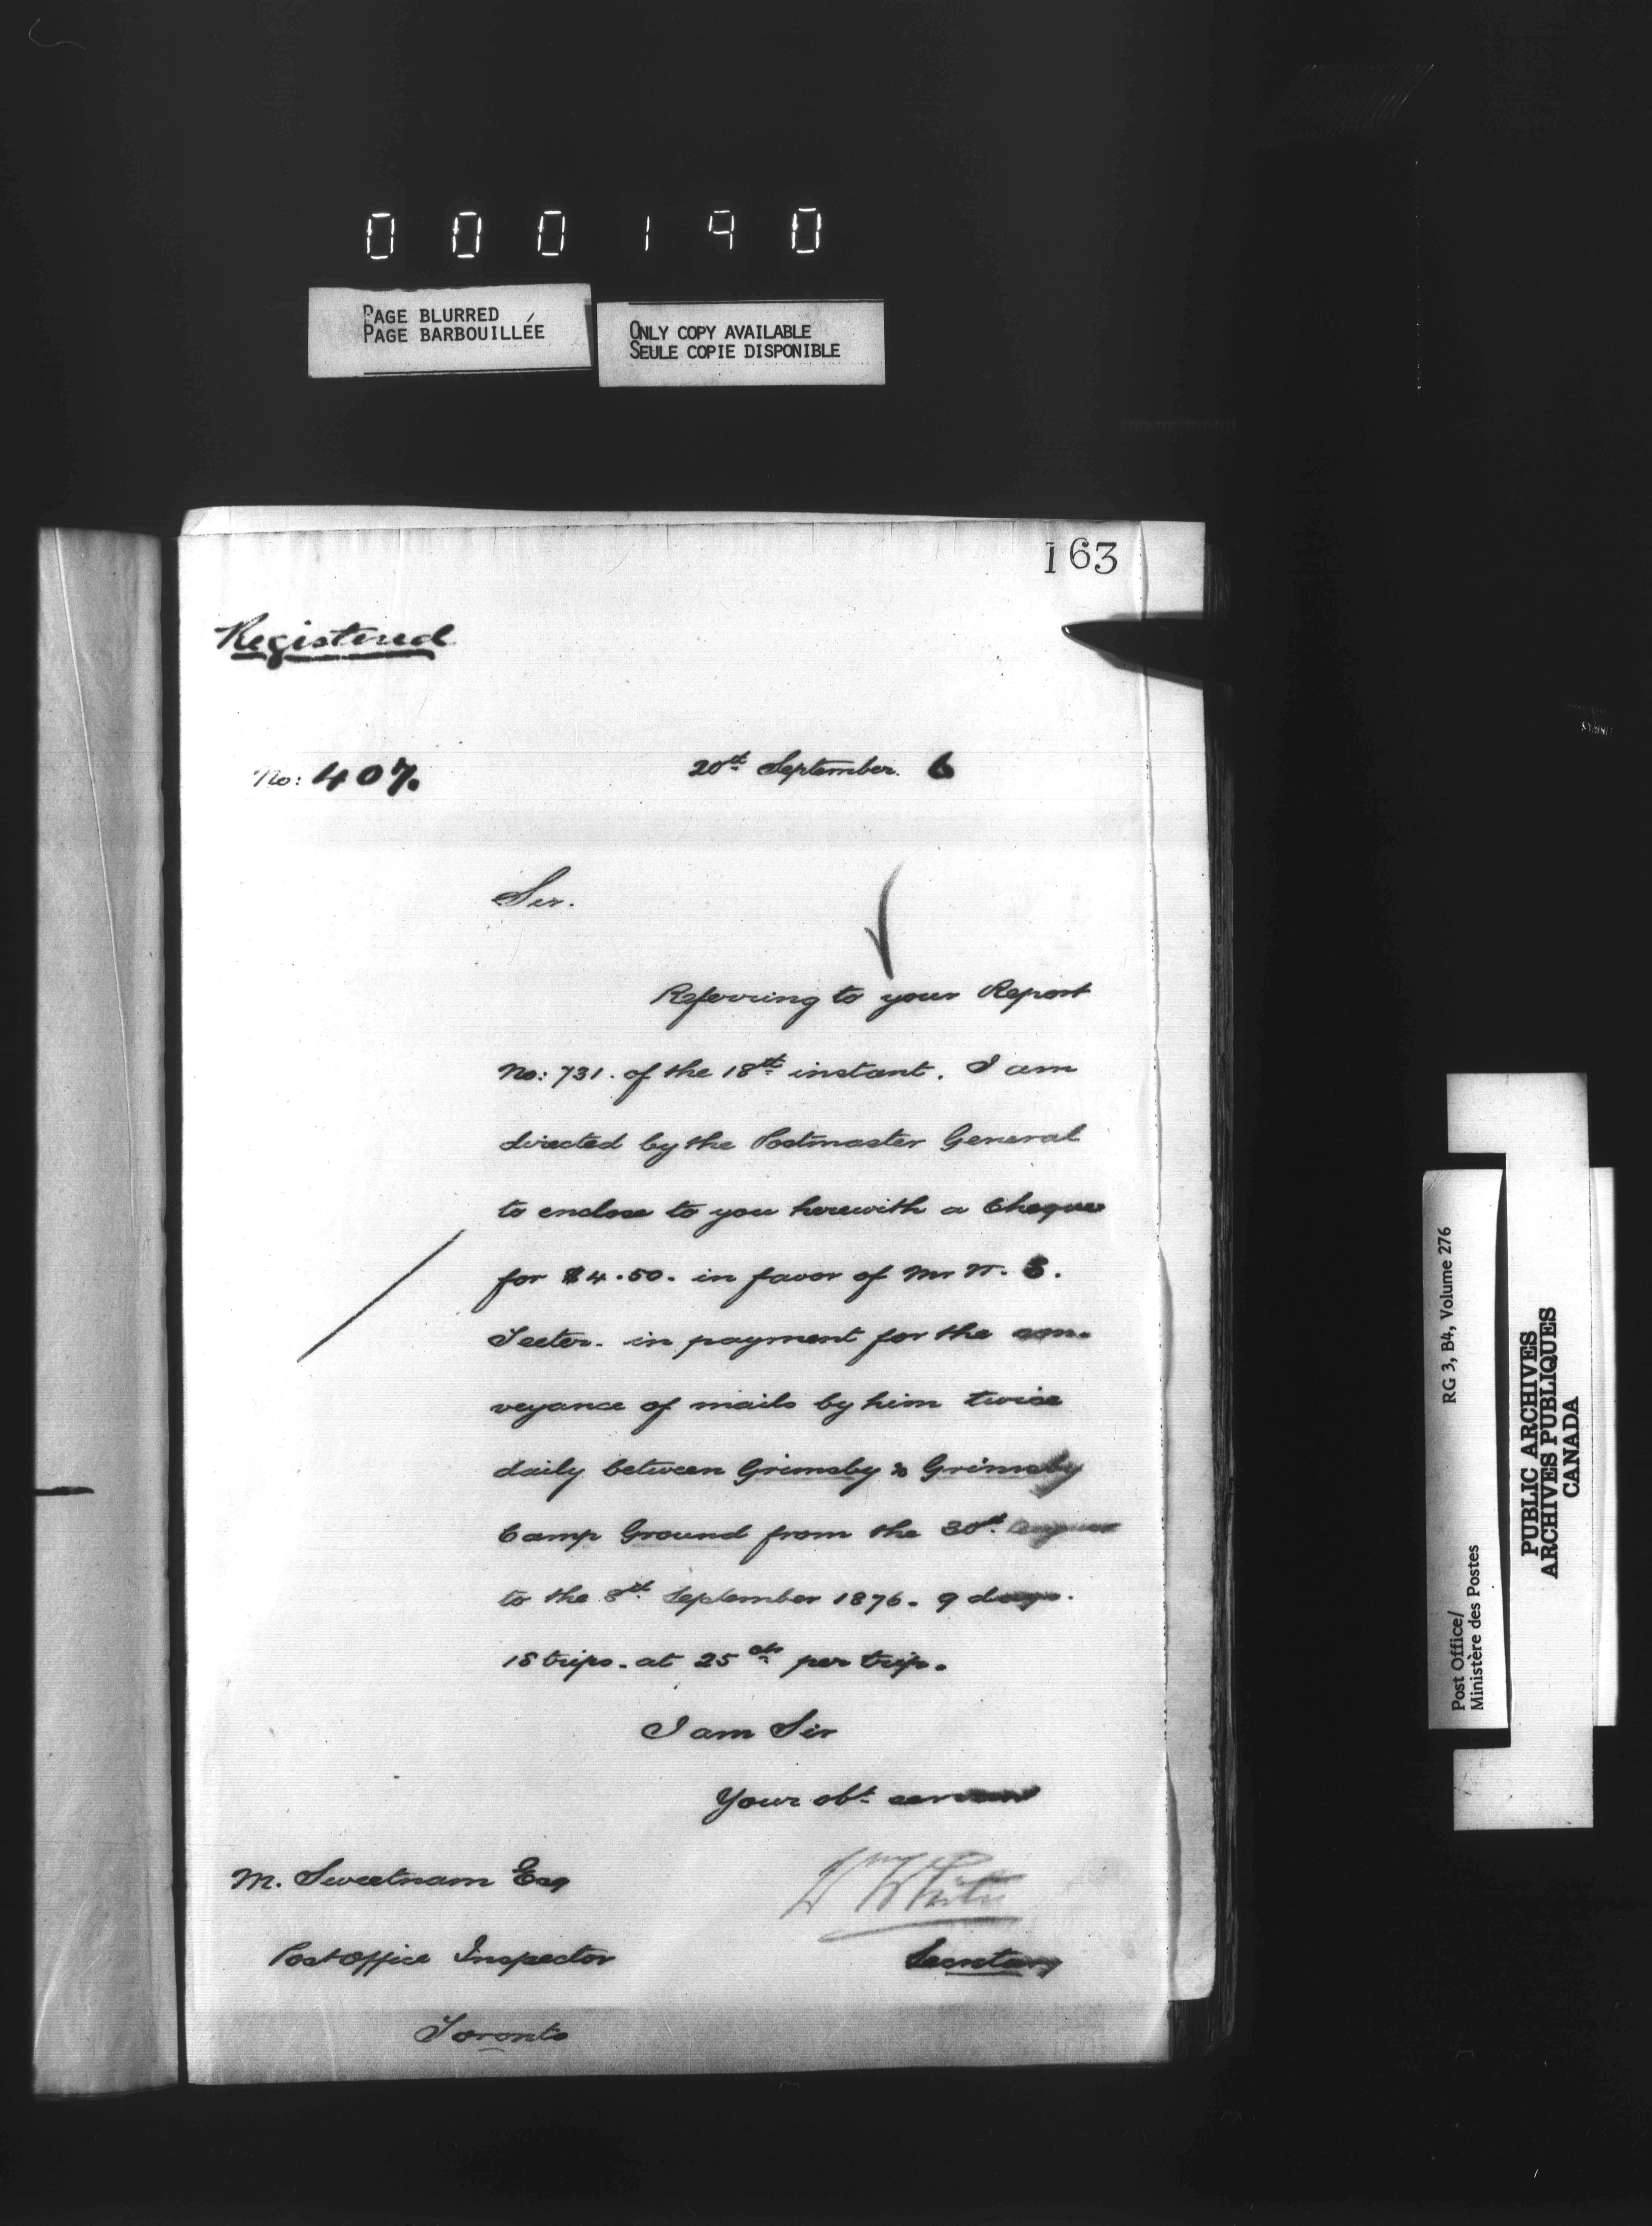 000190
PAGE BLURRED
PAGE BARBOUILLÉE
ONLY COPY AVAILABLE
SEULE COPIE DISPONIBLE
163
Registered
No: 407.
20th September. 6
Sir.
Referring to your Report
No: 731. of the 18th instant. I am
directed by the Postmaster General
to enclose to you herewith a Cheque
for $4.50. in favor of Mr
in payment for the con-
veyance of mails by him twice
daily between Grimsby & Grimsby
Camp Ground from the 30th August
to the 8th September 1876. 9 days.
18 trips. at 25 cts per trip.
I am Sir
Your obt servant
M. Sweetnam Esq
W White
Post Office Inspector
Secretary
Toronto
RG 3, B4, Volume 276
Post Office/
Ministère des Postes
PUBLIC ARCHIVES
ARCHIVES PUBLIQUES
CANADA